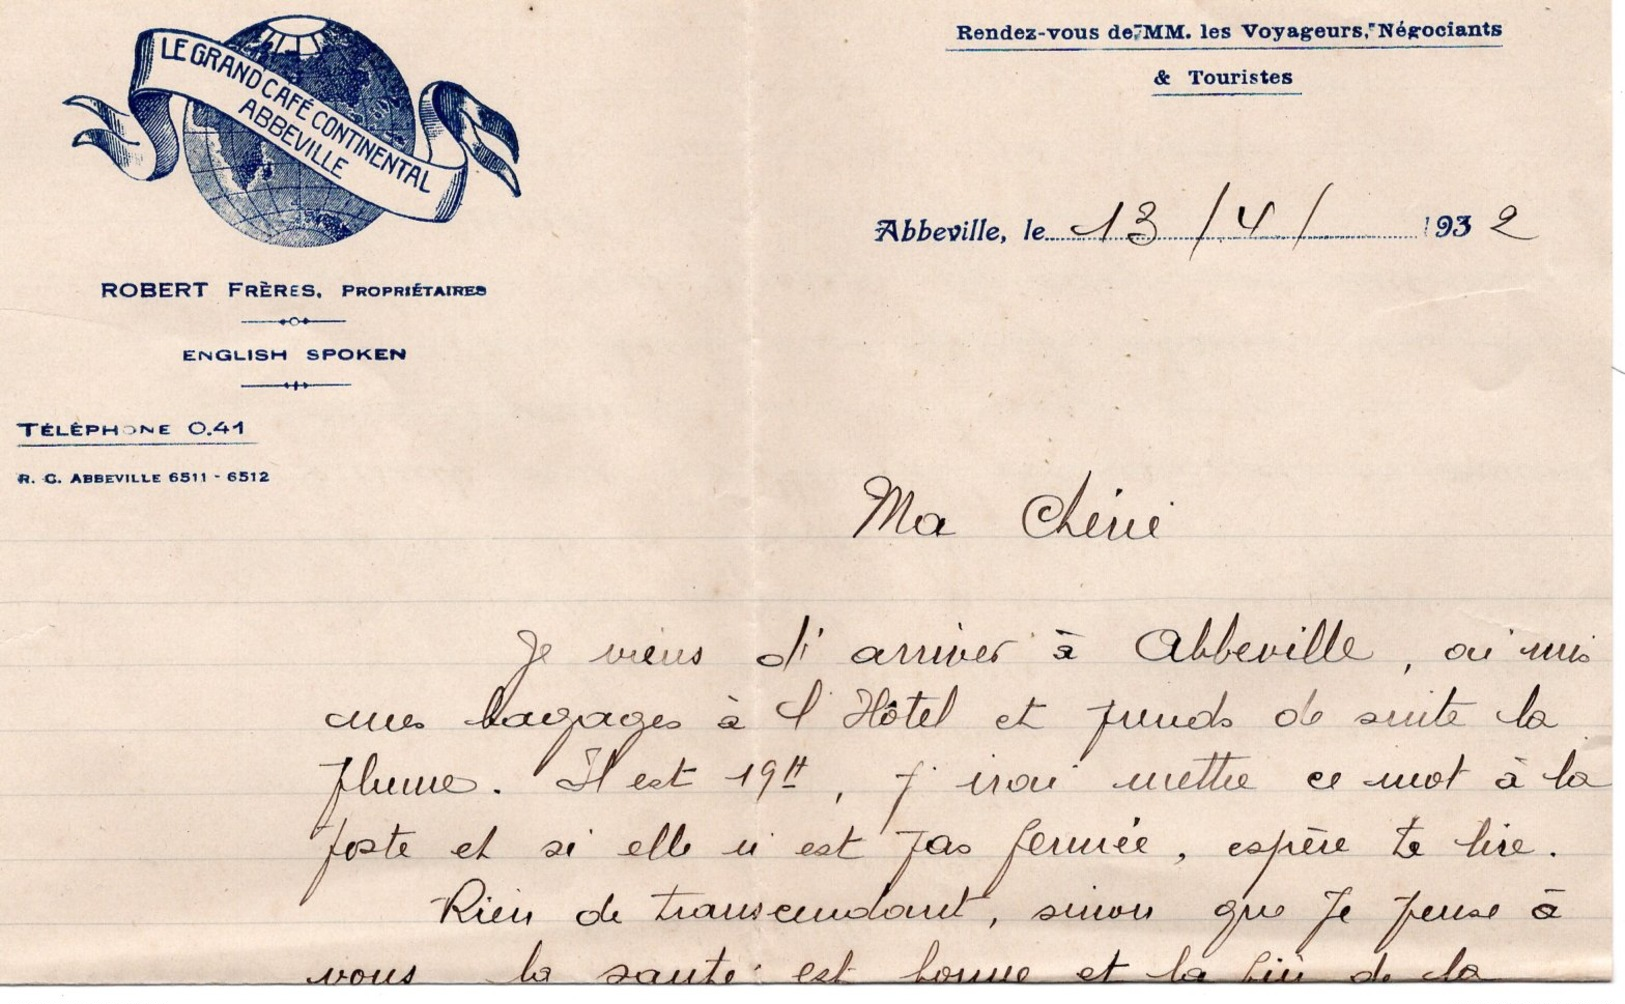 LE GRAND CAFÉ CONTINENTAL
ABBEVILLE
ROBERT FRÈRES, PROPRIÉTAIRES
ENGLISH SPOKEN
TÉLÉPHONE 0.41
R. C. ABBEVILLE 6511 - 6512
Rendez-vous de MM. les Voyageurs, Négociants
& Touristes
Abbeville, le 13/4/ 1932
Ma Chérie
Je viens d'arriver à Abbeville, ai mis
mes bagages à l'Hôtel et prends de suite la
plume. Il est 19H, j'irai mettre ce mot à la
poste et si elle n'est pas fermée, espère te lire.
Rien de transcendant, sinon que je pense à
vous la santé est bonne et la fin de la